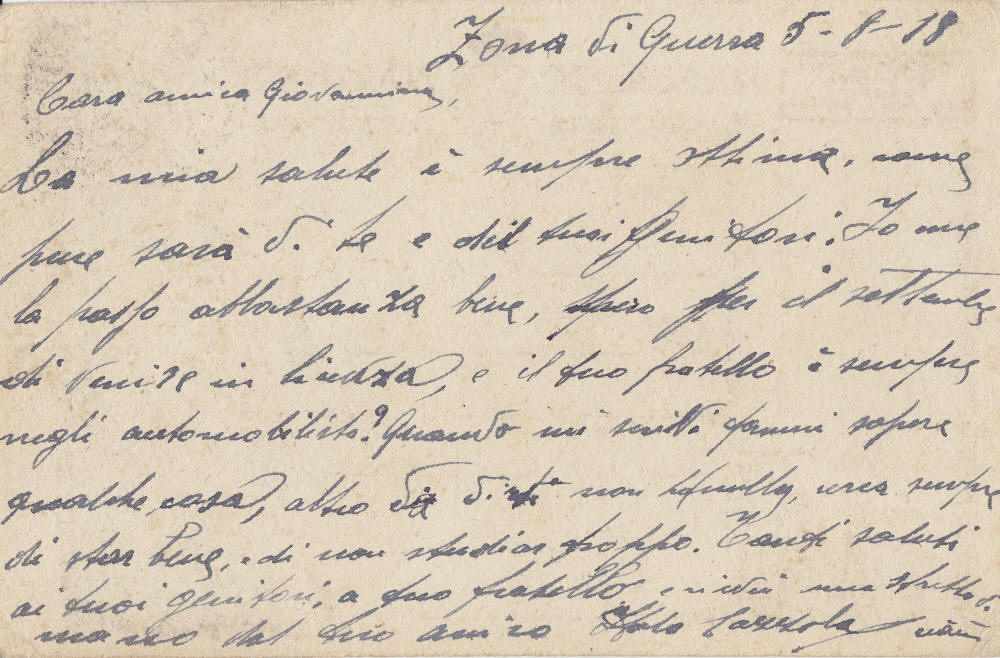 Zona di Guerra 5-8-18
Cara amica Giovannina,
La mia salute è sempre ottima, come
pure sarà di te e dei tuoi genitori. Io me
la passo abbastanza bene, spero per il settembre
di venire in licenza, e il tuo fratello è sempre
negli automobilisti? Quando mi scritti fammi sapere
qualche cosa, altro da dirti non
di star bene, e di non studiar troppo. Tanti saluti
ai tuoi genitori, a tuo fratello, e ricevi una stretta di
mano dal tuo amico Italo Cazzola